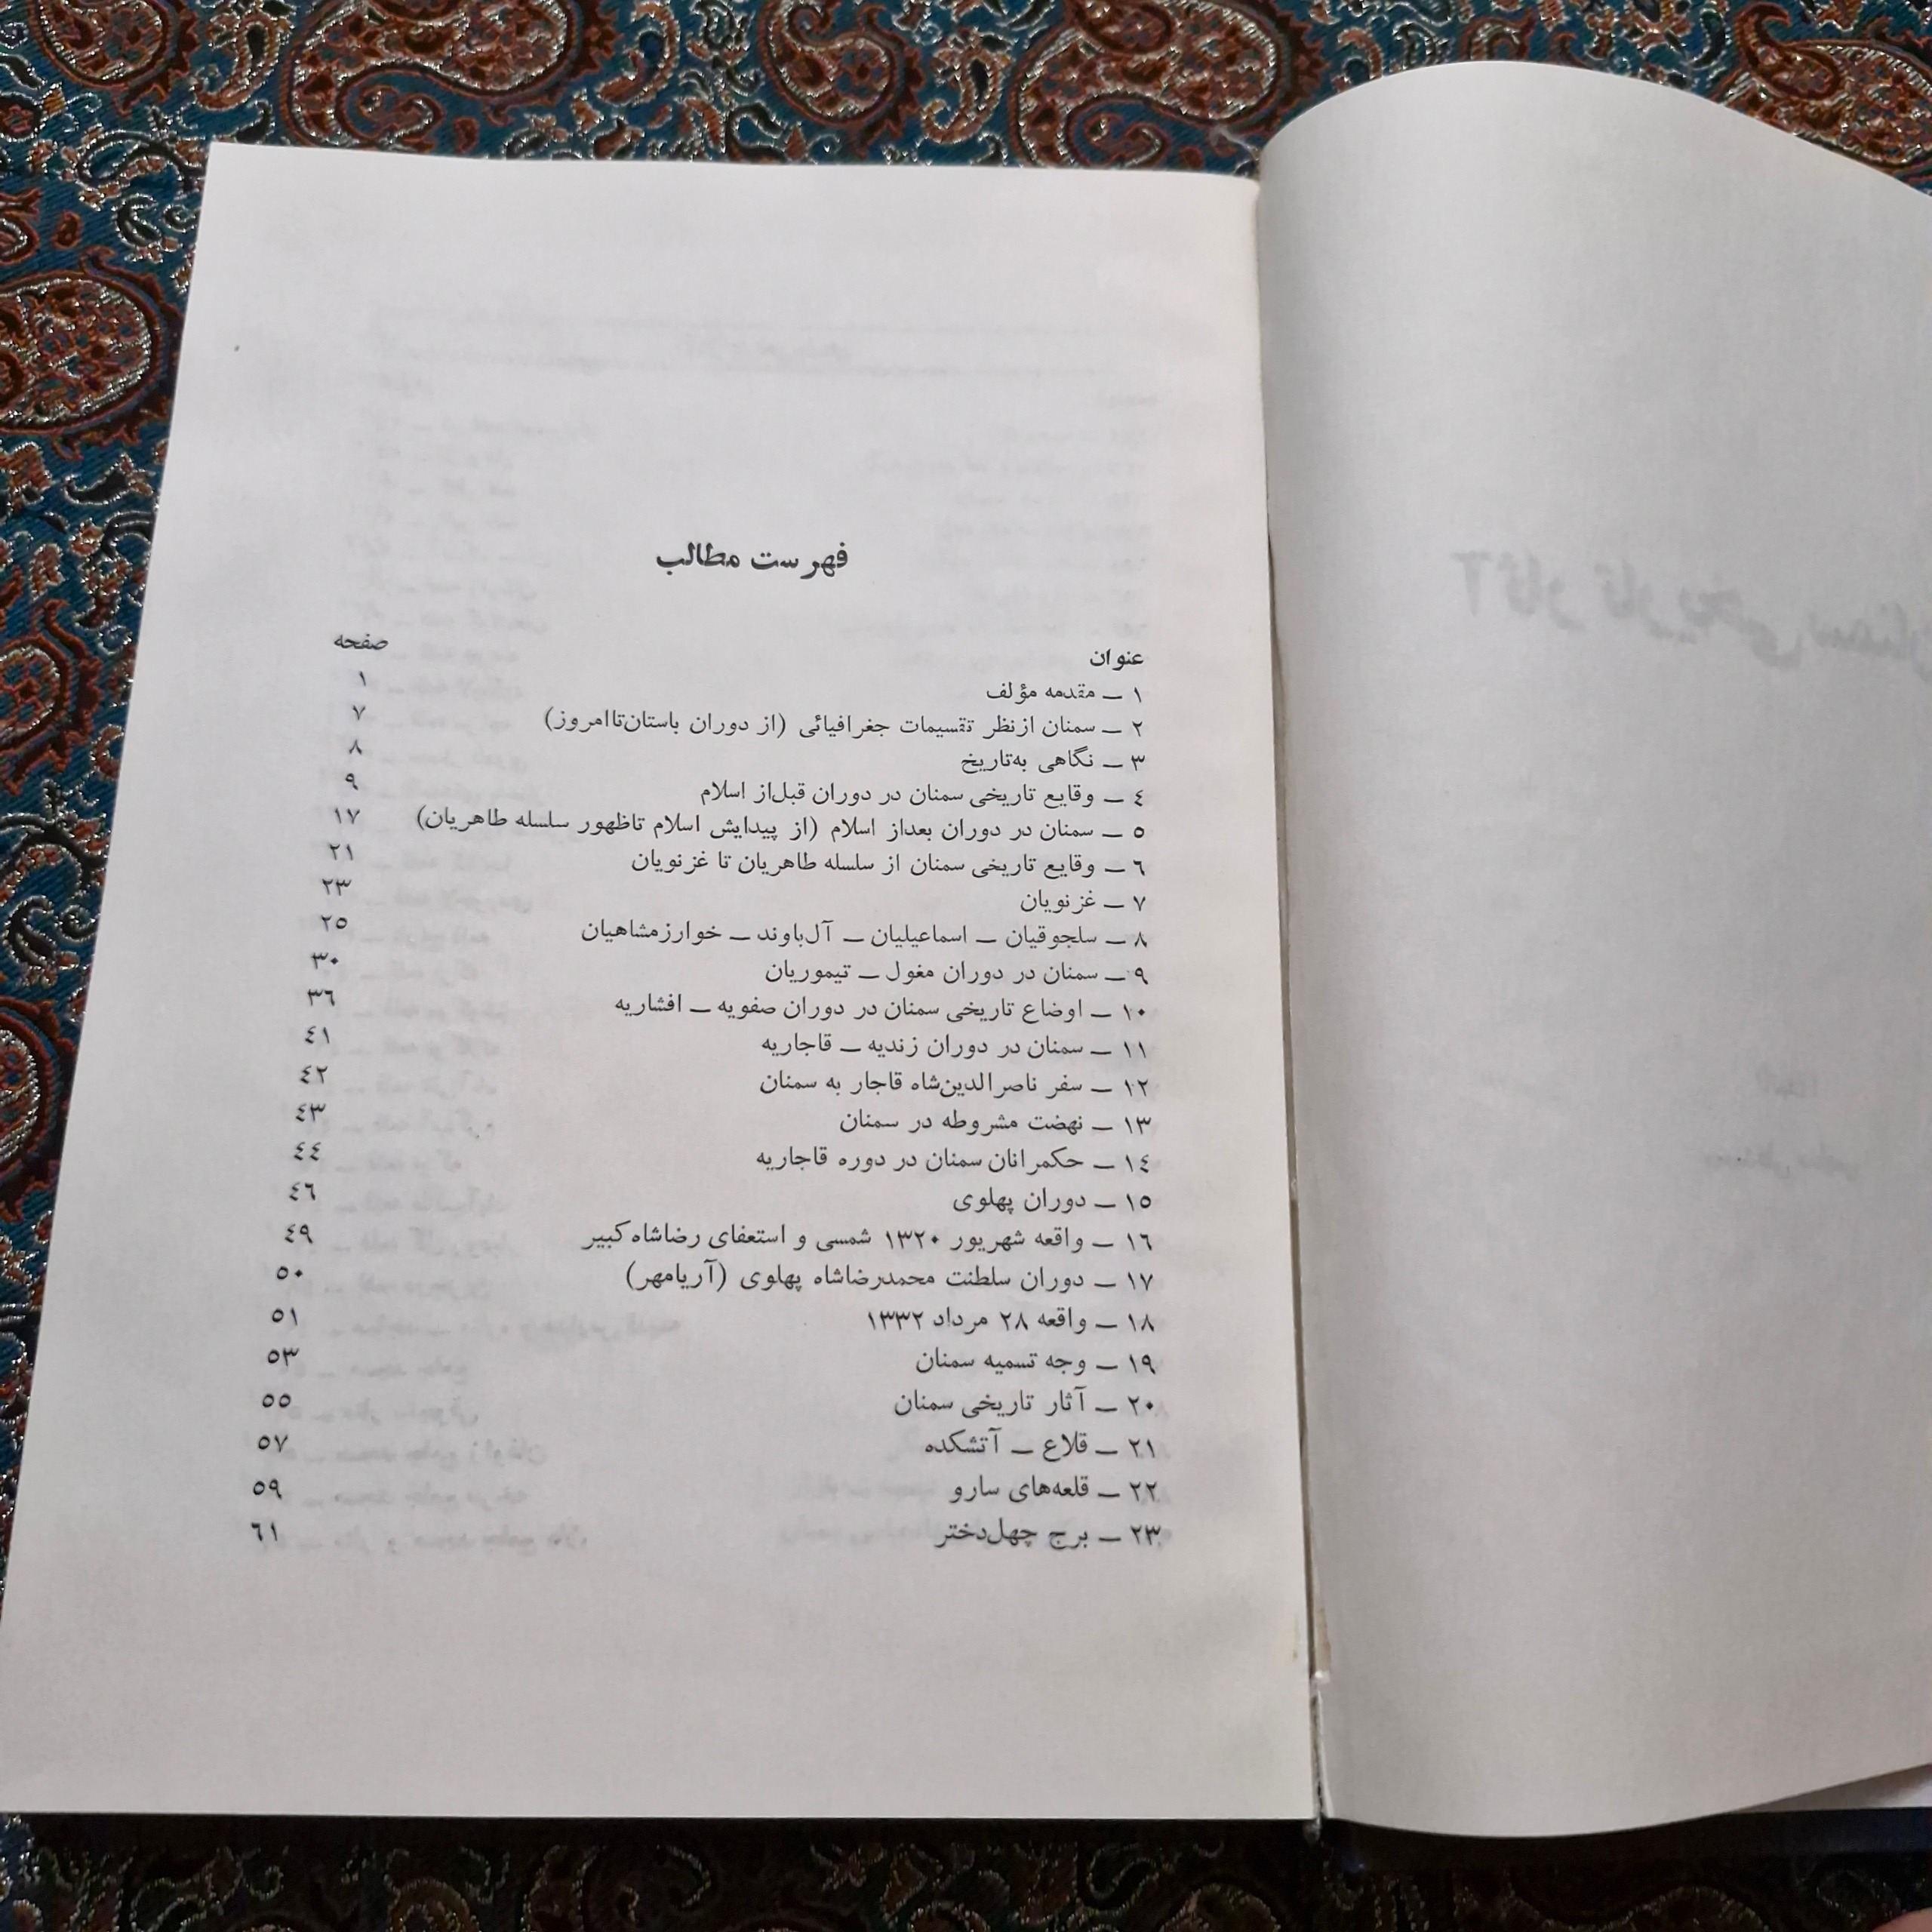 فهرست مطالب
عنوان صفحه
١ ــ مقدمه مؤلف ١
٢ ــ سمنان ازنظر تقسیمات جغرافیائی (از دوران باستان‌تاامروز) ٧
٣ ــ نگاهی به‌تاریخ ٨
٤ ــ وقایع تاریخی سمنان در دوران قبل‌از اسلام ٩
٥ ــ سمنان در دوران بعداز اسلام (از پیدایش اسلام تاظهور سلسله طاهریان) ١٧
٦ ــ وقایع تاریخی سمنان از سلسله طاهریان تا غزنویان ٢١
٧ ــ غزنویان ٢٣
٨ ــ سلجوقیان ــ اسماعیلیان ــ آل‌باوند ــ خوارزمشاهیان ٢٥
٩ ــ سمنان در دوران مغول ــ تیموریان ٣٠
١٠ ــ اوضاع تاریخی سمنان در دوران صفویه ــ افشاریه ٣٦
١١ ــ سمنان در دوران زندیه ــ قاجاریه ٤١
١٢ ــ سفر ناصرالدین‌شاه قاجار به سمنان ٤٢
١٣ ــ نهضت مشروطه در سمنان ٤٣
١٤ ــ حکمرانان سمنان در دوره قاجاریه ٤٤
١٥ ــ دوران پهلوی ٤٦
١٦ ــ واقعه شهریور ١٣٢٠ شمسی و استعفای رضاشاه‌کبیر ٤٩
١٧ ــ دوران سلطنت محمدرضاشاه پهلوی (آریامهر) ٥٠
١٨ ــ واقعه ٢٨ مرداد ١٣٣٢ ٥١
١٩ ــ وجه تسمیه سمنان ٥٣
٢٠ ــ آثار تاریخی سمنان ٥٥
٢١ ــ قلاع ــ آتشکده ٥٧
٢٢ ــ قلعه‌های سارو ٥٩
٢٣ ــ برج چهل‌دختر ٦١